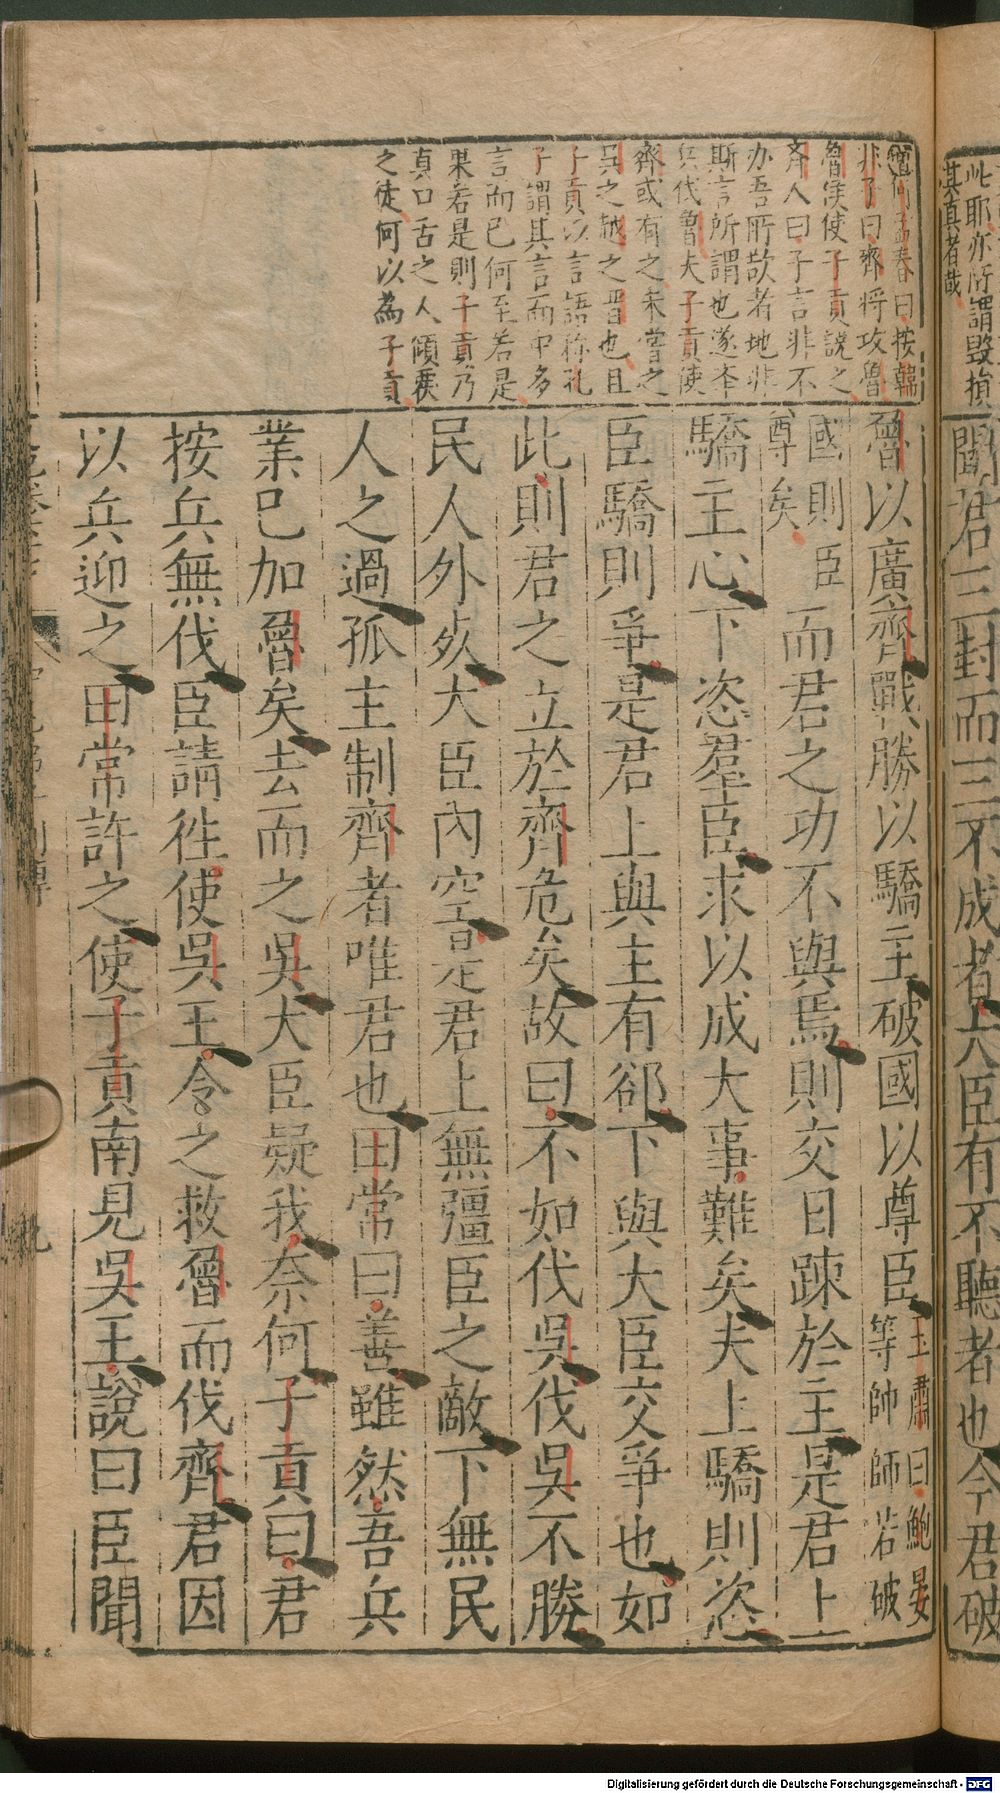 此耶亦所謂毀損
其真者哉
聞君三封而三不成者大臣有不聽者也今君破
曾何孟春曰按韓
非子曰齊將攻魯
魯使子貢說之
齊人曰子言非不
辨吾所欲者地非
斯言所謂也遂舉
兵伐魯夫子貢使
齊或有之未嘗之
吳之越之晉也且
子貢以言語稱孔
子謂其言而中多
言而已何至若是
果若是則子貢乃
真口舌之人傾危
之徒何以為子貢
魯以廣齊戰勝以驕主破國以尊臣王肅曰鮑晏等帥師若破
國則臣尊矣而君之功不與焉則交日疎於主是君上
驕主心下恣羣臣求以成大事難矣夫上驕則恣
臣驕則爭是君上與主有郤下與大臣交爭也如
此則君之立於齊危矣故曰不如伐吳伐吳不勝
民人外死大臣內空是君上無彊臣之敵下無民
人之過孤主制齊者唯君也田常曰善雖然吾兵
業已加魯矣去而之吳大臣疑我奈何子貢曰君
按兵無伐臣請往使吳王令之救魯而伐齊君因
以兵迎之田常許之使子貢南見吳王說曰臣聞
九
Digitalisierung gefördert durch die Deutsche Forschungsgemeinschaft - DFG